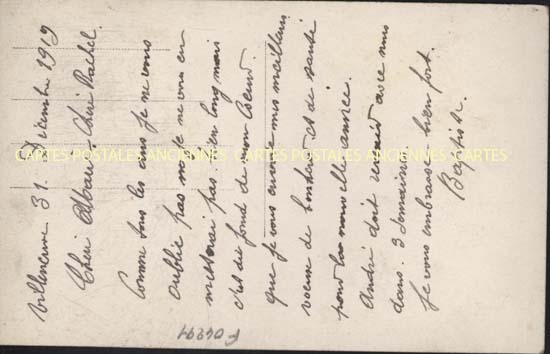 Villeneuve 31 Décembre 1919
Chéri Chéri Rachel.
Comme tous les ans je ne vous
oublie pas mais je ne vous en
pas bien long mais
c'est du fond de mon Coeur.
que je vous envoie mes meilleurs
voeux de bonheur et de santé
pour la nouvelle année.
André doit revenir avec nous
dans. 3 semaines.
Je vous embrasse bien fort.
Baptiste.
CARTES POSTALES ANCIENNES -CARTES POSTALES ANCIENNES -CARTES
F06297